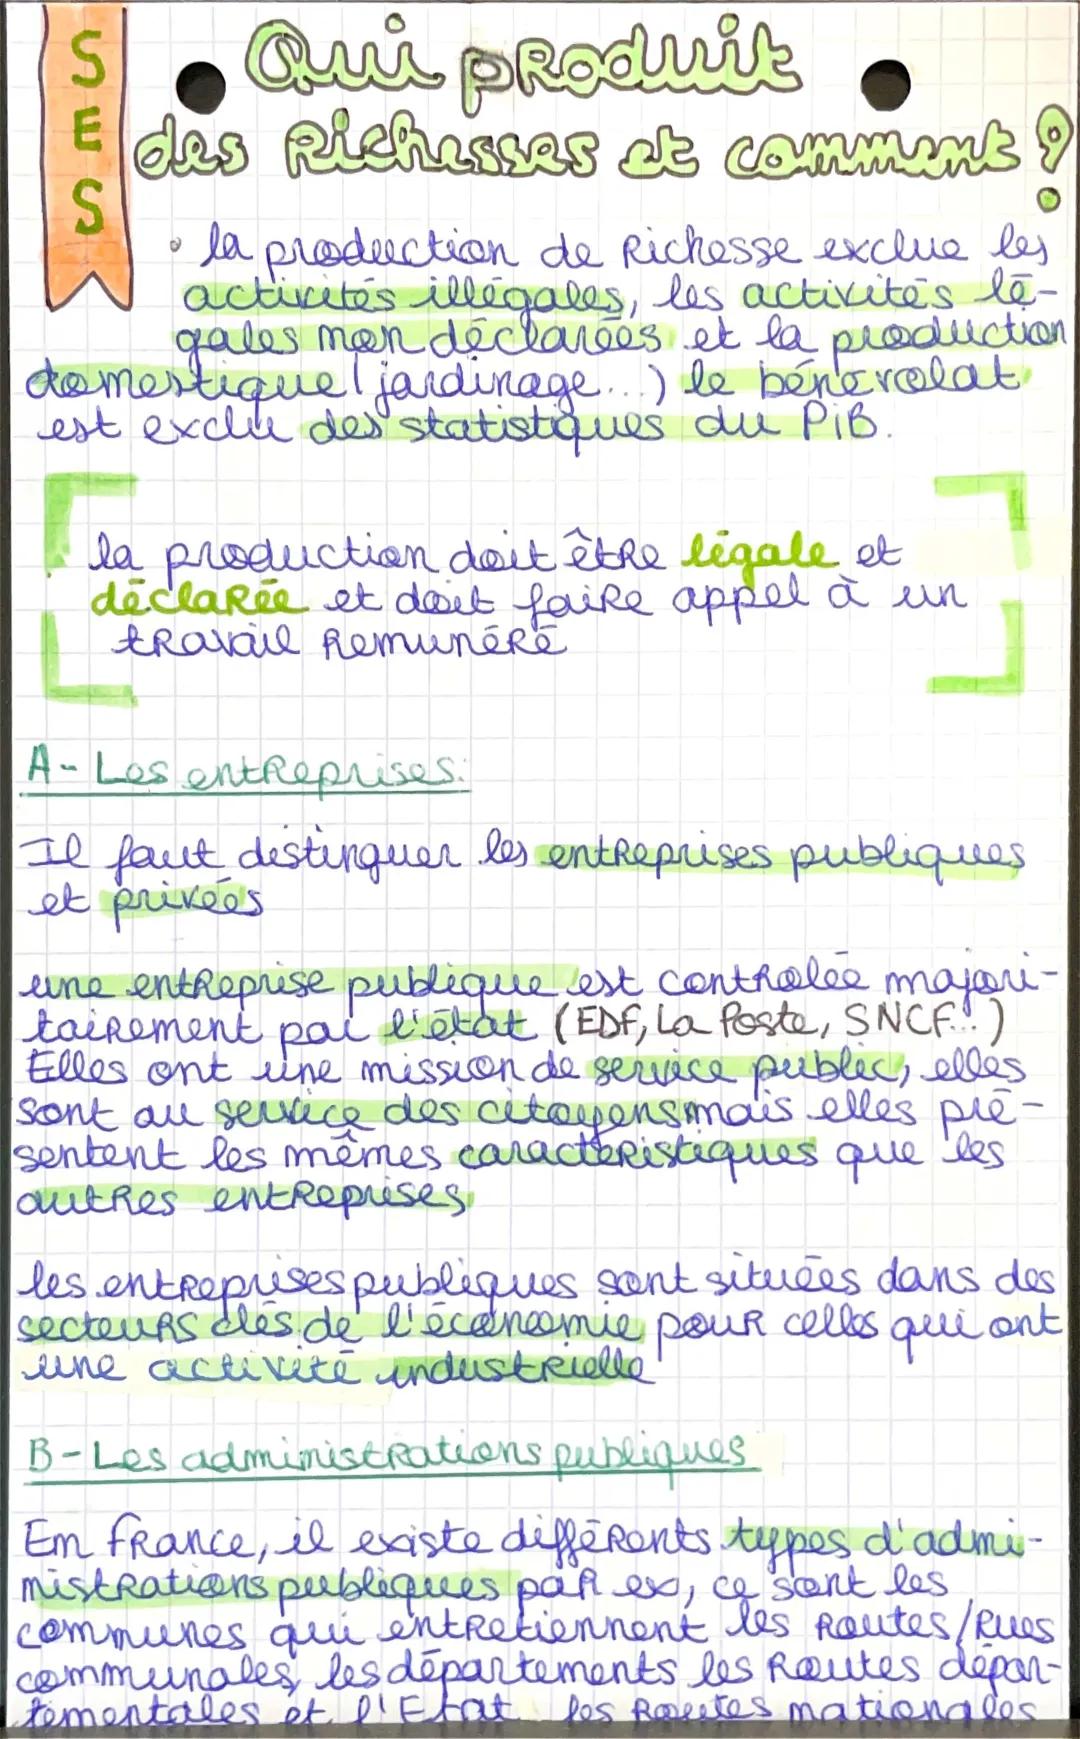 SES
Qui produit
des Richesses et comment ?
• la production de Richesse exclue les
activités illégales, les activités lé-
gales non déclarées et la production
domestique (jardinage...) le bénévolat
est exclu des statistiques du PiB.
la production doit être légale et
déclarée et doit faire appel à un
travail Remunéré
A- Les entreprises:
Il faut distinguer les entreprises publiques
et privées
une entreprise publique est controlée majori-
tairement par l'état (EDF, La Poste, SNCF...)
Elles ont une mission de service public, elles
sont au service des citoyens mais elles pré-
sentent les mêmes caractéristiques que les
autres entreprises,
les entreprises publiques sont situées dans des
secteurs clés de l'économie pour celles qui ont
une activité industrielle
B- Les administrations publiques
En France, il existe différents types d'admi-
nistrations publiques par ex, ce sont les
communes qui entretiennent les Routes/Rues
communales, les départements les Routes dépar-
tementales et l'Etat les Routes nationales